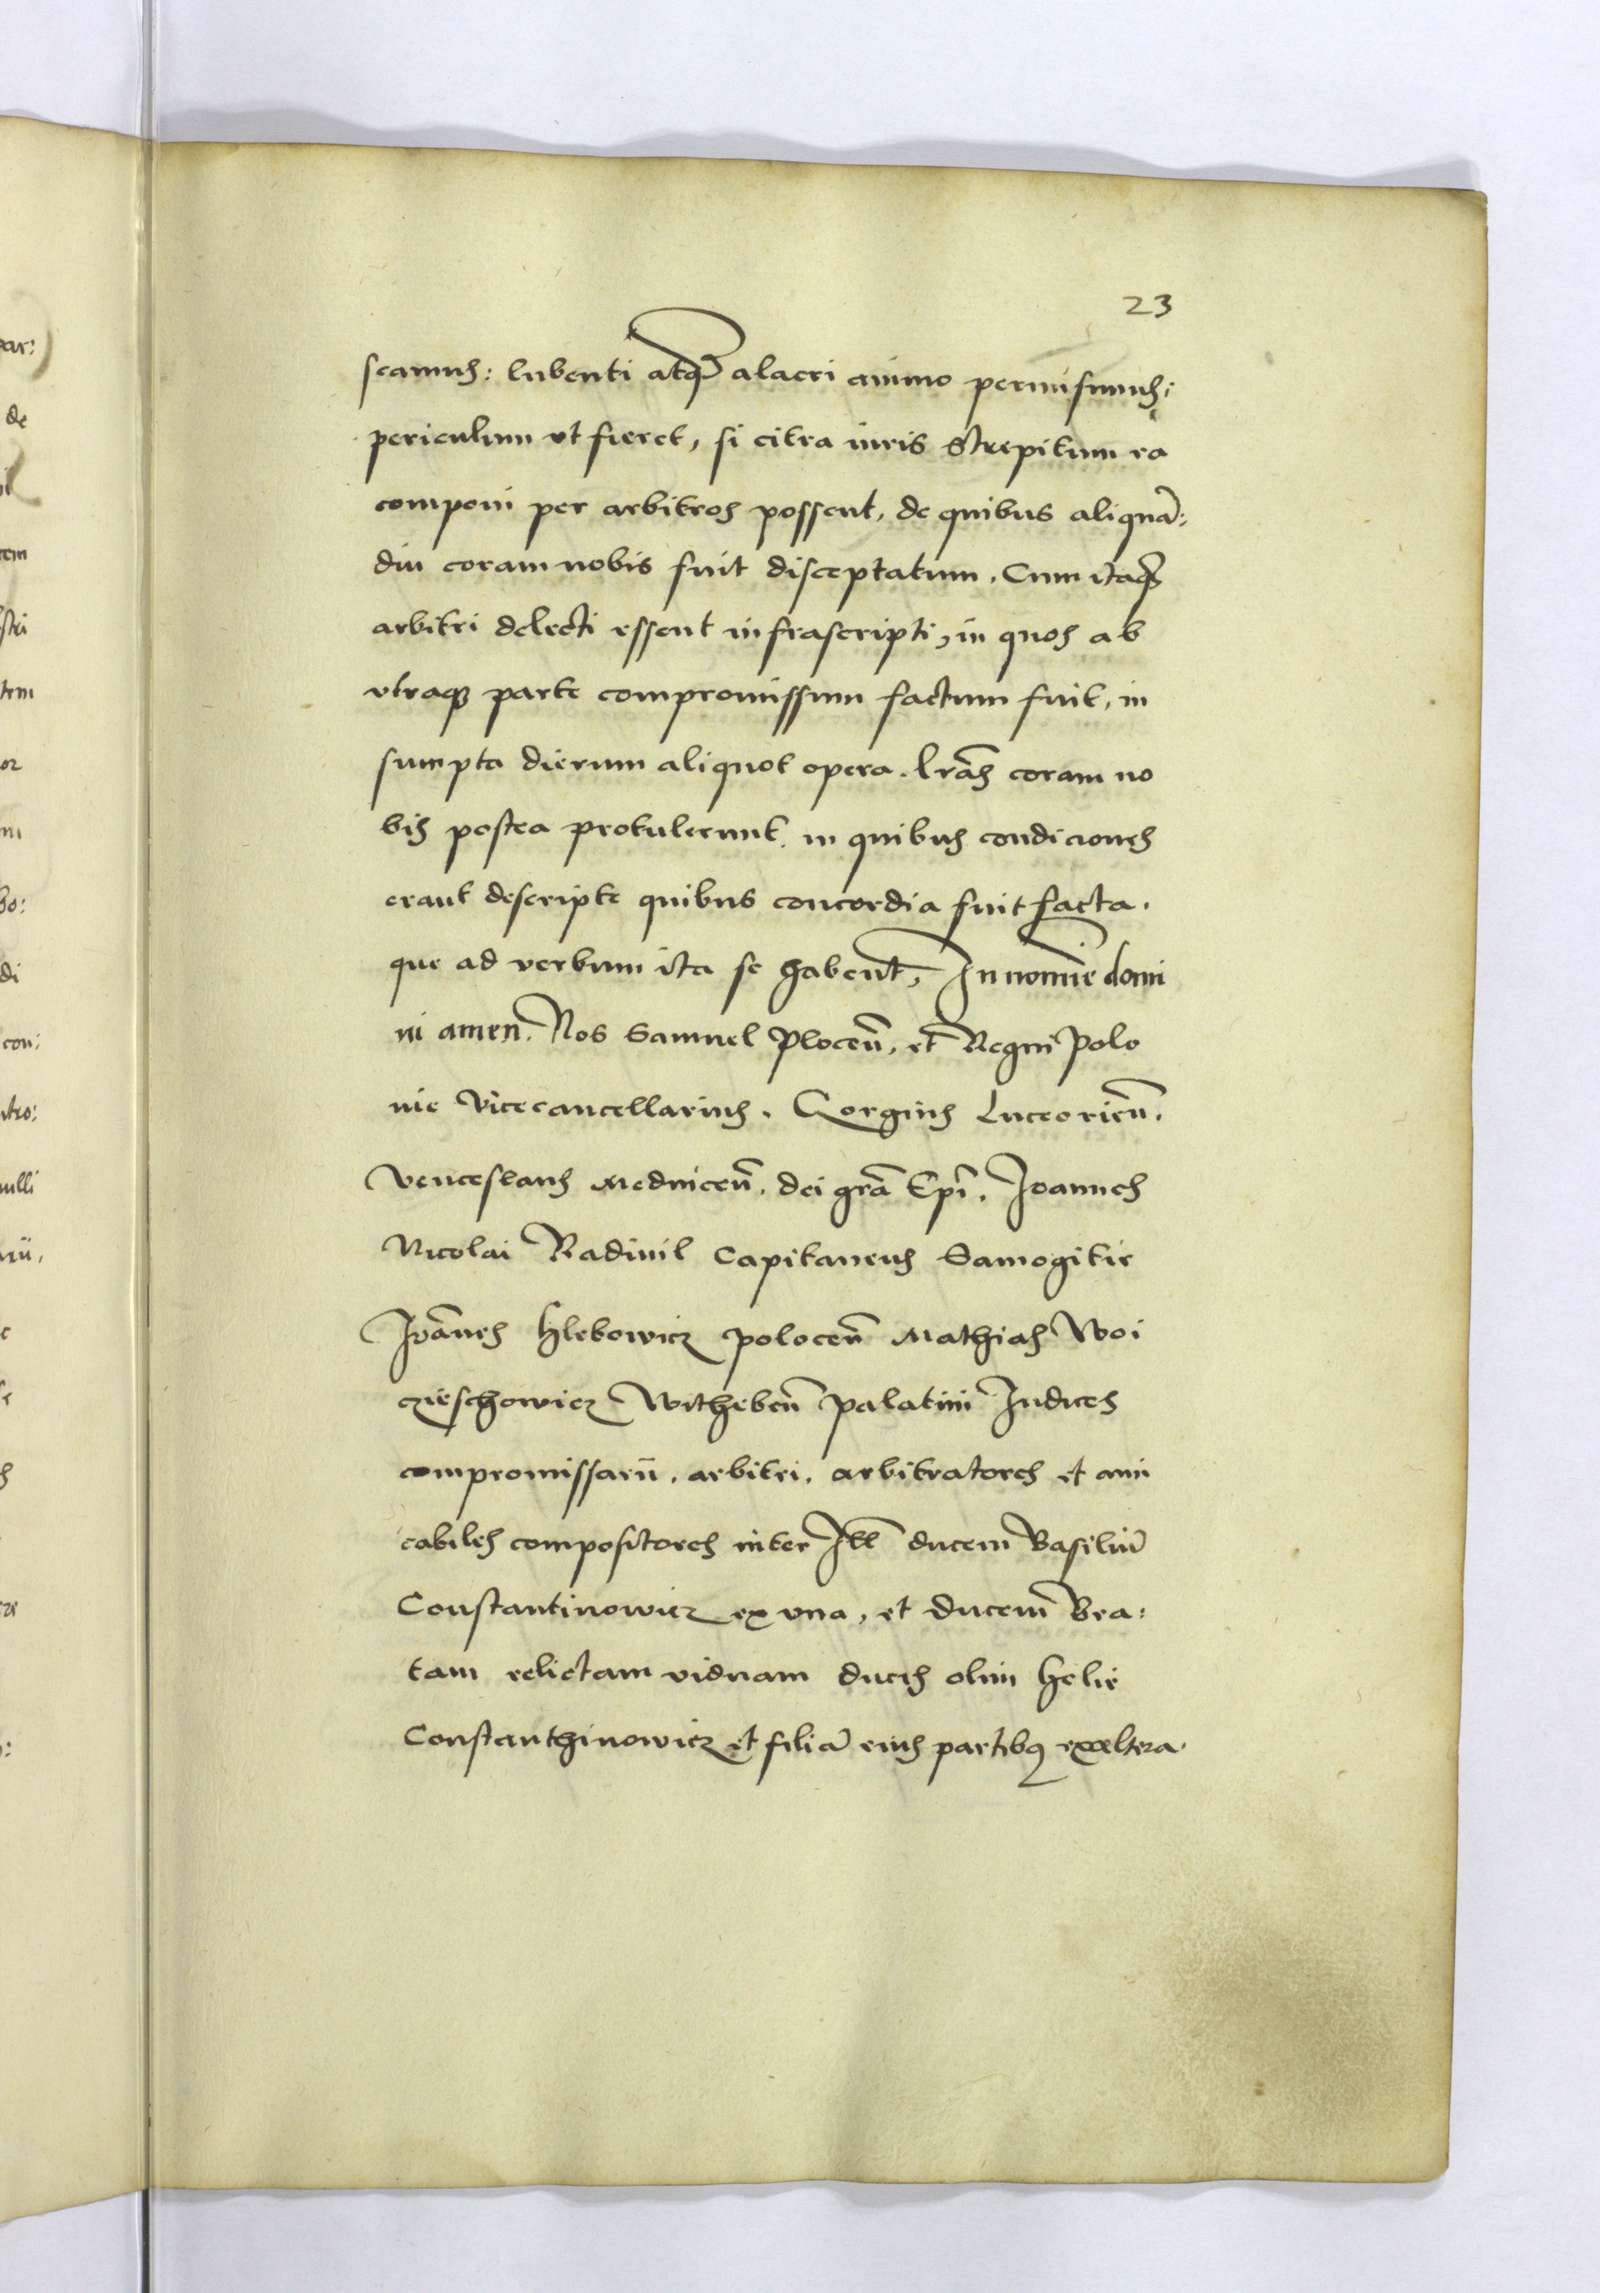 23
scamus: lubenti atq₃ alacri animo permisimus:
periculum vt fieret, si citra iuris strepitum ea
componi per arbitros possent, de quibus aliquā:
diu coram nobis fuit disceptatum. Cum itaq₃
arbitri delecti essent infrascripti, in quos ab
vtraq₃ parte compromissum factum fuit, in
sumpta dierum aliquot opera. lrās coram no
bis postea protulerunt. in quibus condiciones
erant descripte quibus concordia fuit facta.
que ad verbum ita se habent, In nomīe domi
ni amen. Nos Samuel Plocen̄, et Regni Polo
nie Vicecancellarius. Georgius Luceorien̄.
Venceslaus Mednicen̄. dei grā Epī. Joannes
Nicolai Radiuil Capitaneus Samogitie
Joānes Hlebowicz Polocen̄ Mathias Woi
czieschowicz Withebcen̄ Palatini Judices
compromissarii. arbitri. arbitratores et ami
cabiles compositores inter Ill̄ ducem Basiliū
Constantinowicz ex vna, et Ducem Bea:
tam relictam viduam ducis olim Helie
Constanthinowicz et filiā eius partibꝰ ex altera.
ar:
de
tem
stri
tem
or
bo:
di
con:
ntro:
nulli